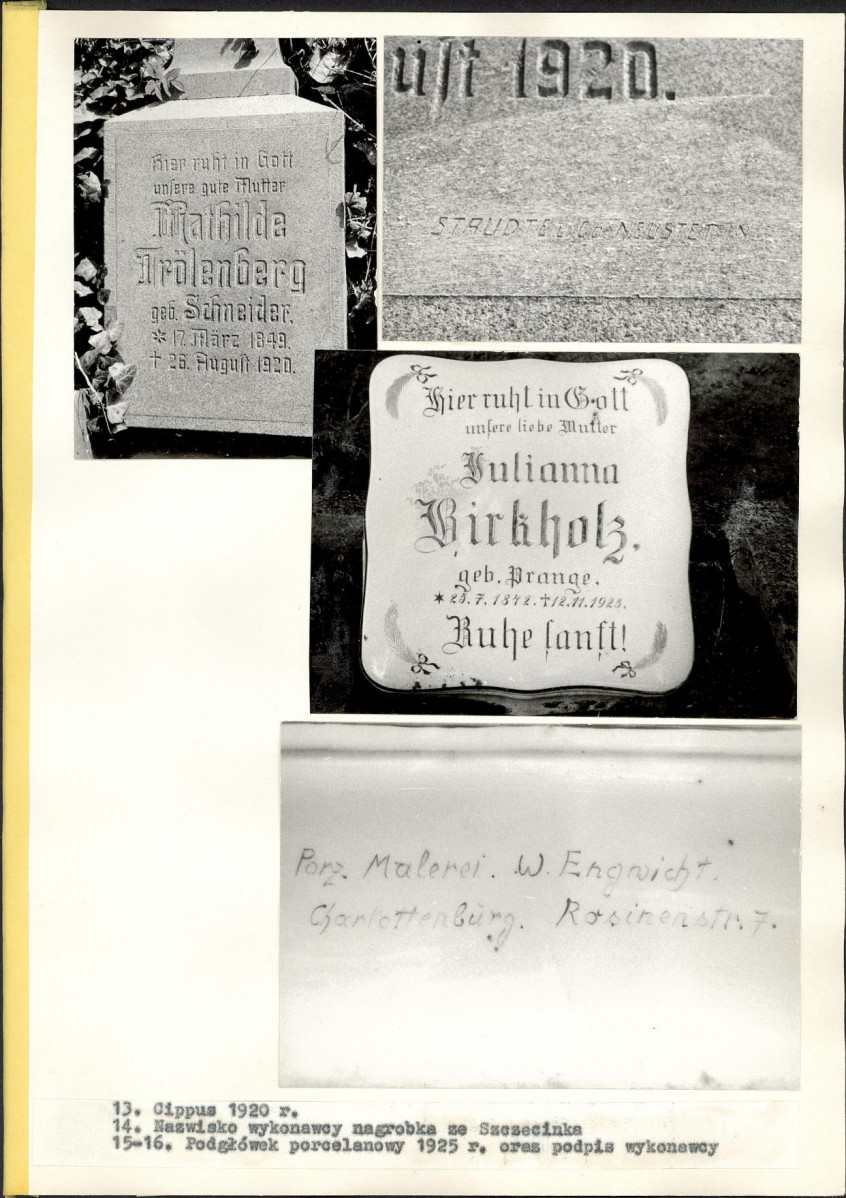 Hier ruht in Gott
unsere gute Mutter
Mathilde
Trölenberg
geb. Schneider.
* 17. März 1849.
† 26. August 1920.
ust 1920.
STAUDTE u. Co. NEUSTETTIN
Hier ruht in Gott
unsere liebe Mutter
Julianna
Birkholz.
geb. Prange.
* 25. 7. 1842. † 12. 11. 1925.
Ruhe sanft!
Porz. Malerei. W. Engwicht.
Charlottenburg. Rosinenstr. 7.
13. Cippus 1920 r.
14. Nazwisko wykonawcy nagrobka ze Szczecinka
15-16. Podgłówek porcelanowy 1925 r. oraz podpis wykonawcy